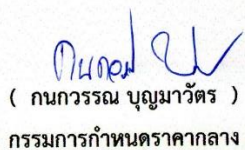 ( กนกวรรณ บุญมาวัตร )
กรรมการกำหนดราคากลาง